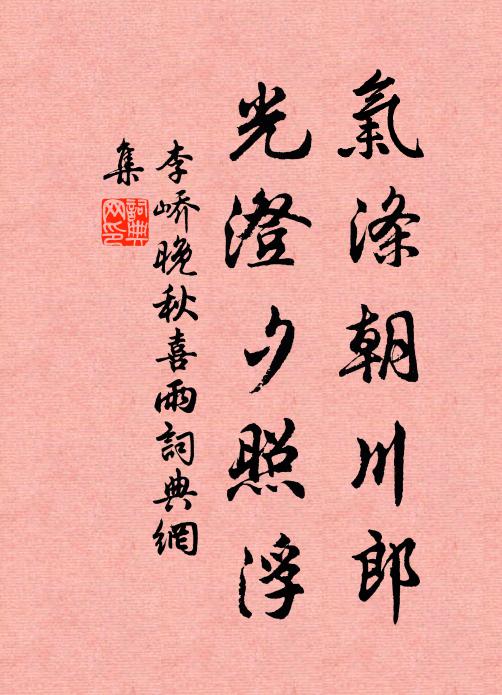 氣滌朝川郎
光澄夕照浮
李嶠晚秋喜雨詞典網
集
詞典網印